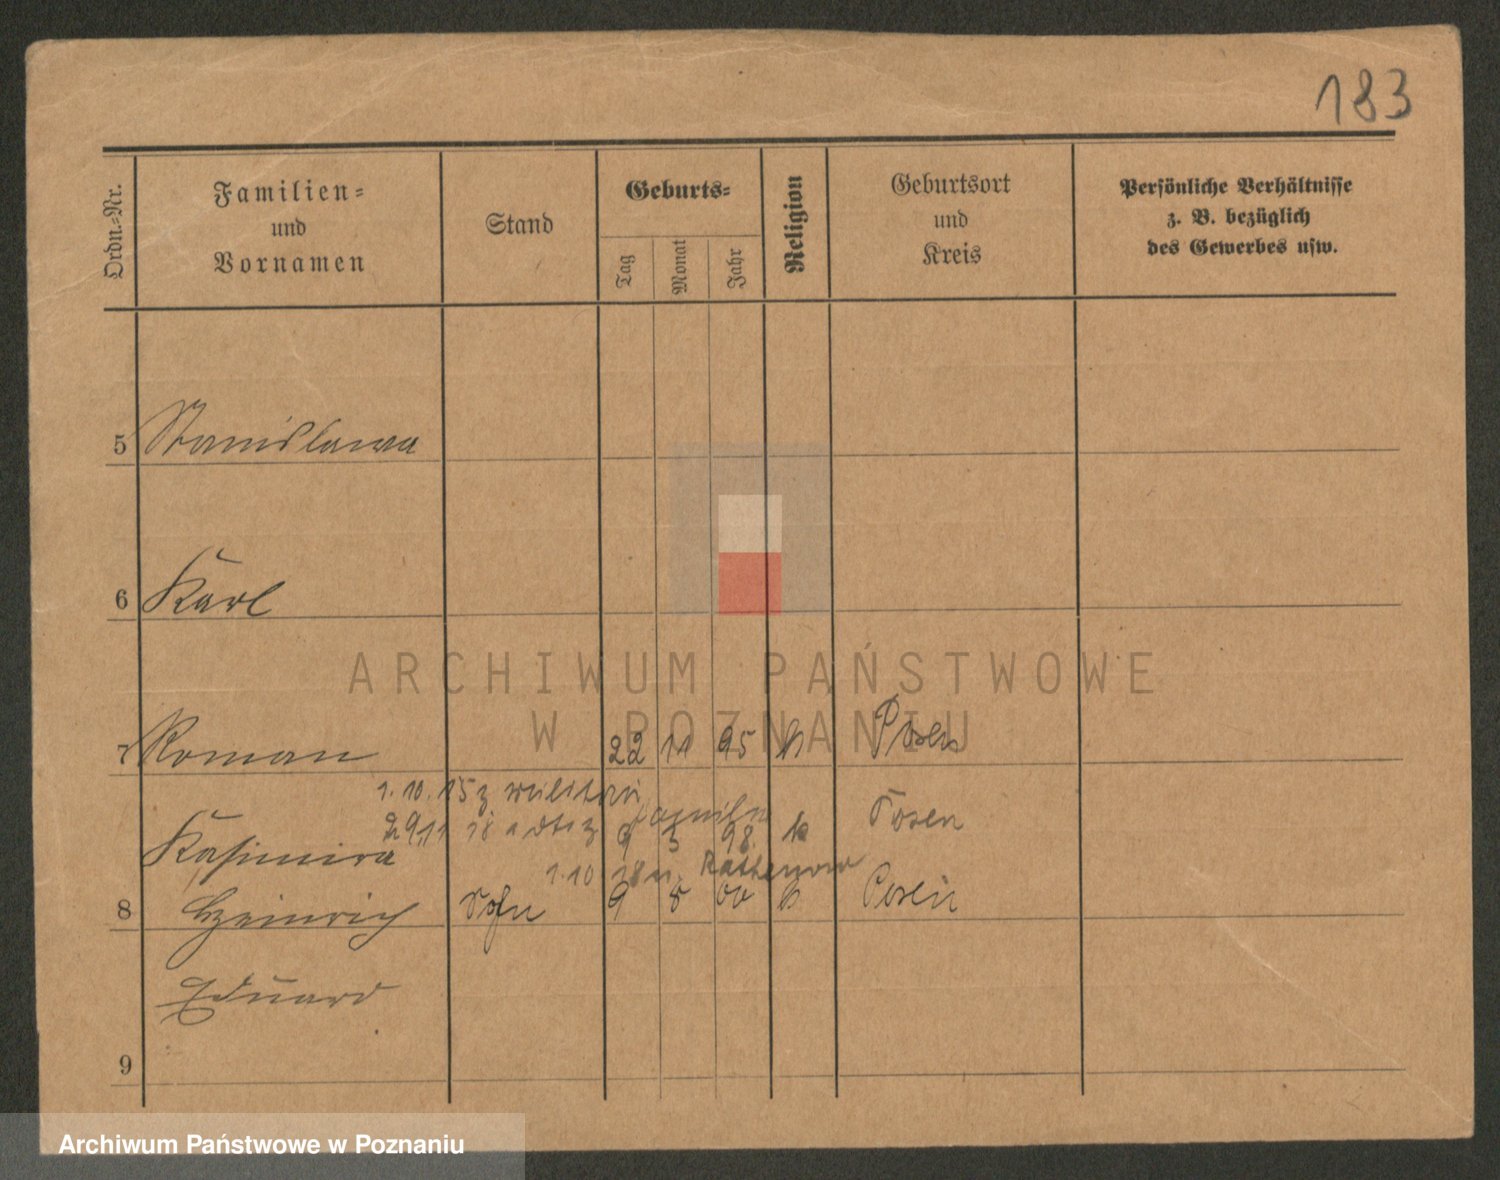 183
Ordn.=Nr.
Familien=
und
Vornamen
Stand
Geburts=
Tag
Monat
Jahr
Religion
Geburtsort
und
Kreis
Persönliche Verhältnisse
z. B. bezüglich
des Gewerbes usw.
5 Stanislawa
6 Karl
ARCHIWUM PAŃSTWOWE
W POZNANIU
7 Roman 22 11 95 k Posen
1. 10. 15 z. Militär
29.11 18
Kasimira 9 3 98. k Posen
1.10 18 n. Rathenow
8 Heinrich Sohn 9 8 00 k Posen
Eduard
9
Archiwum Państwowe w Poznaniu